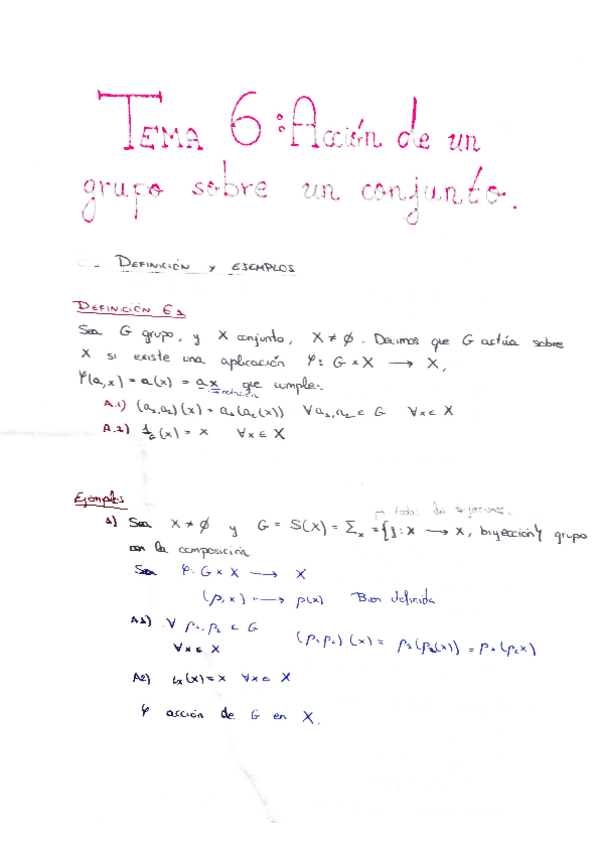 TEMA 6: Acción de un
grupo sobre un conjunto.
- DEFINICIÓN Y EJEMPLOS
DEFINICIÓN 6.1
Sea G grupo, y X conjunto, X ≠ ∅. Decimos que G actúa sobre
X si existe una aplicación φ: G × X → X,
φ(a,x) = a(x) = ax que cumple:
notación
A.1) (a₁,a₂)(x) = a₁(a₂(x)) ∀a₁,a₂ ∈ G ∀x ∈ X
A.2) 1_G(x) = x ∀x ∈ X
Ejemplos
1) Sea X ≠ ∅ y G = S(X) = Σₓ = {f: X → X, biyección} grupo
con la composición
Sea φ: G × X → X
(ρ,x) → ρ(x) Bien definida
A1) ∀ ρ₁,ρ₂ ∈ G (ρ₁ρ₂)(x) = ρ₁(ρ₂(x)) = ρ₁(ρ₂x)
∀x ∈ X
A2) (x) = x ∀x ∈ X
φ acción de G en X.